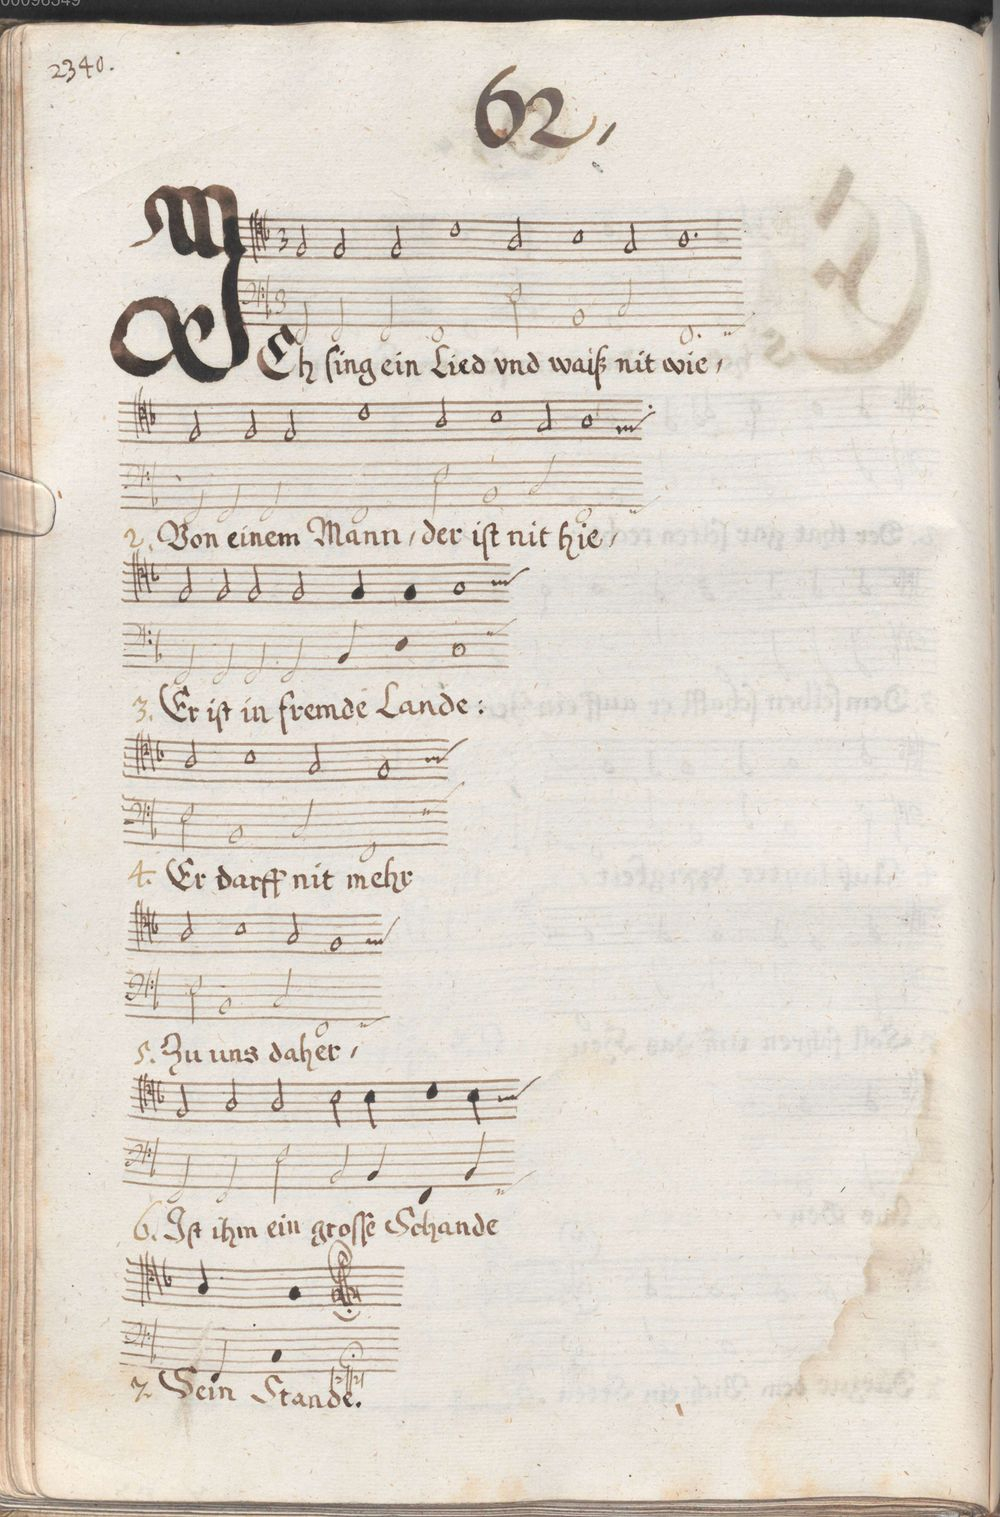 00098549
2340.
62,
ICh sing ein Lied vnd waiß nit wie,
2. Von einem Mann, der ist nit hie,
3. Er ist in fremde Lande:
4. Er darff nit mehr
5. Zu uns daher,
6. Ist ihm ein grosse Schande
7. Sein Stande.